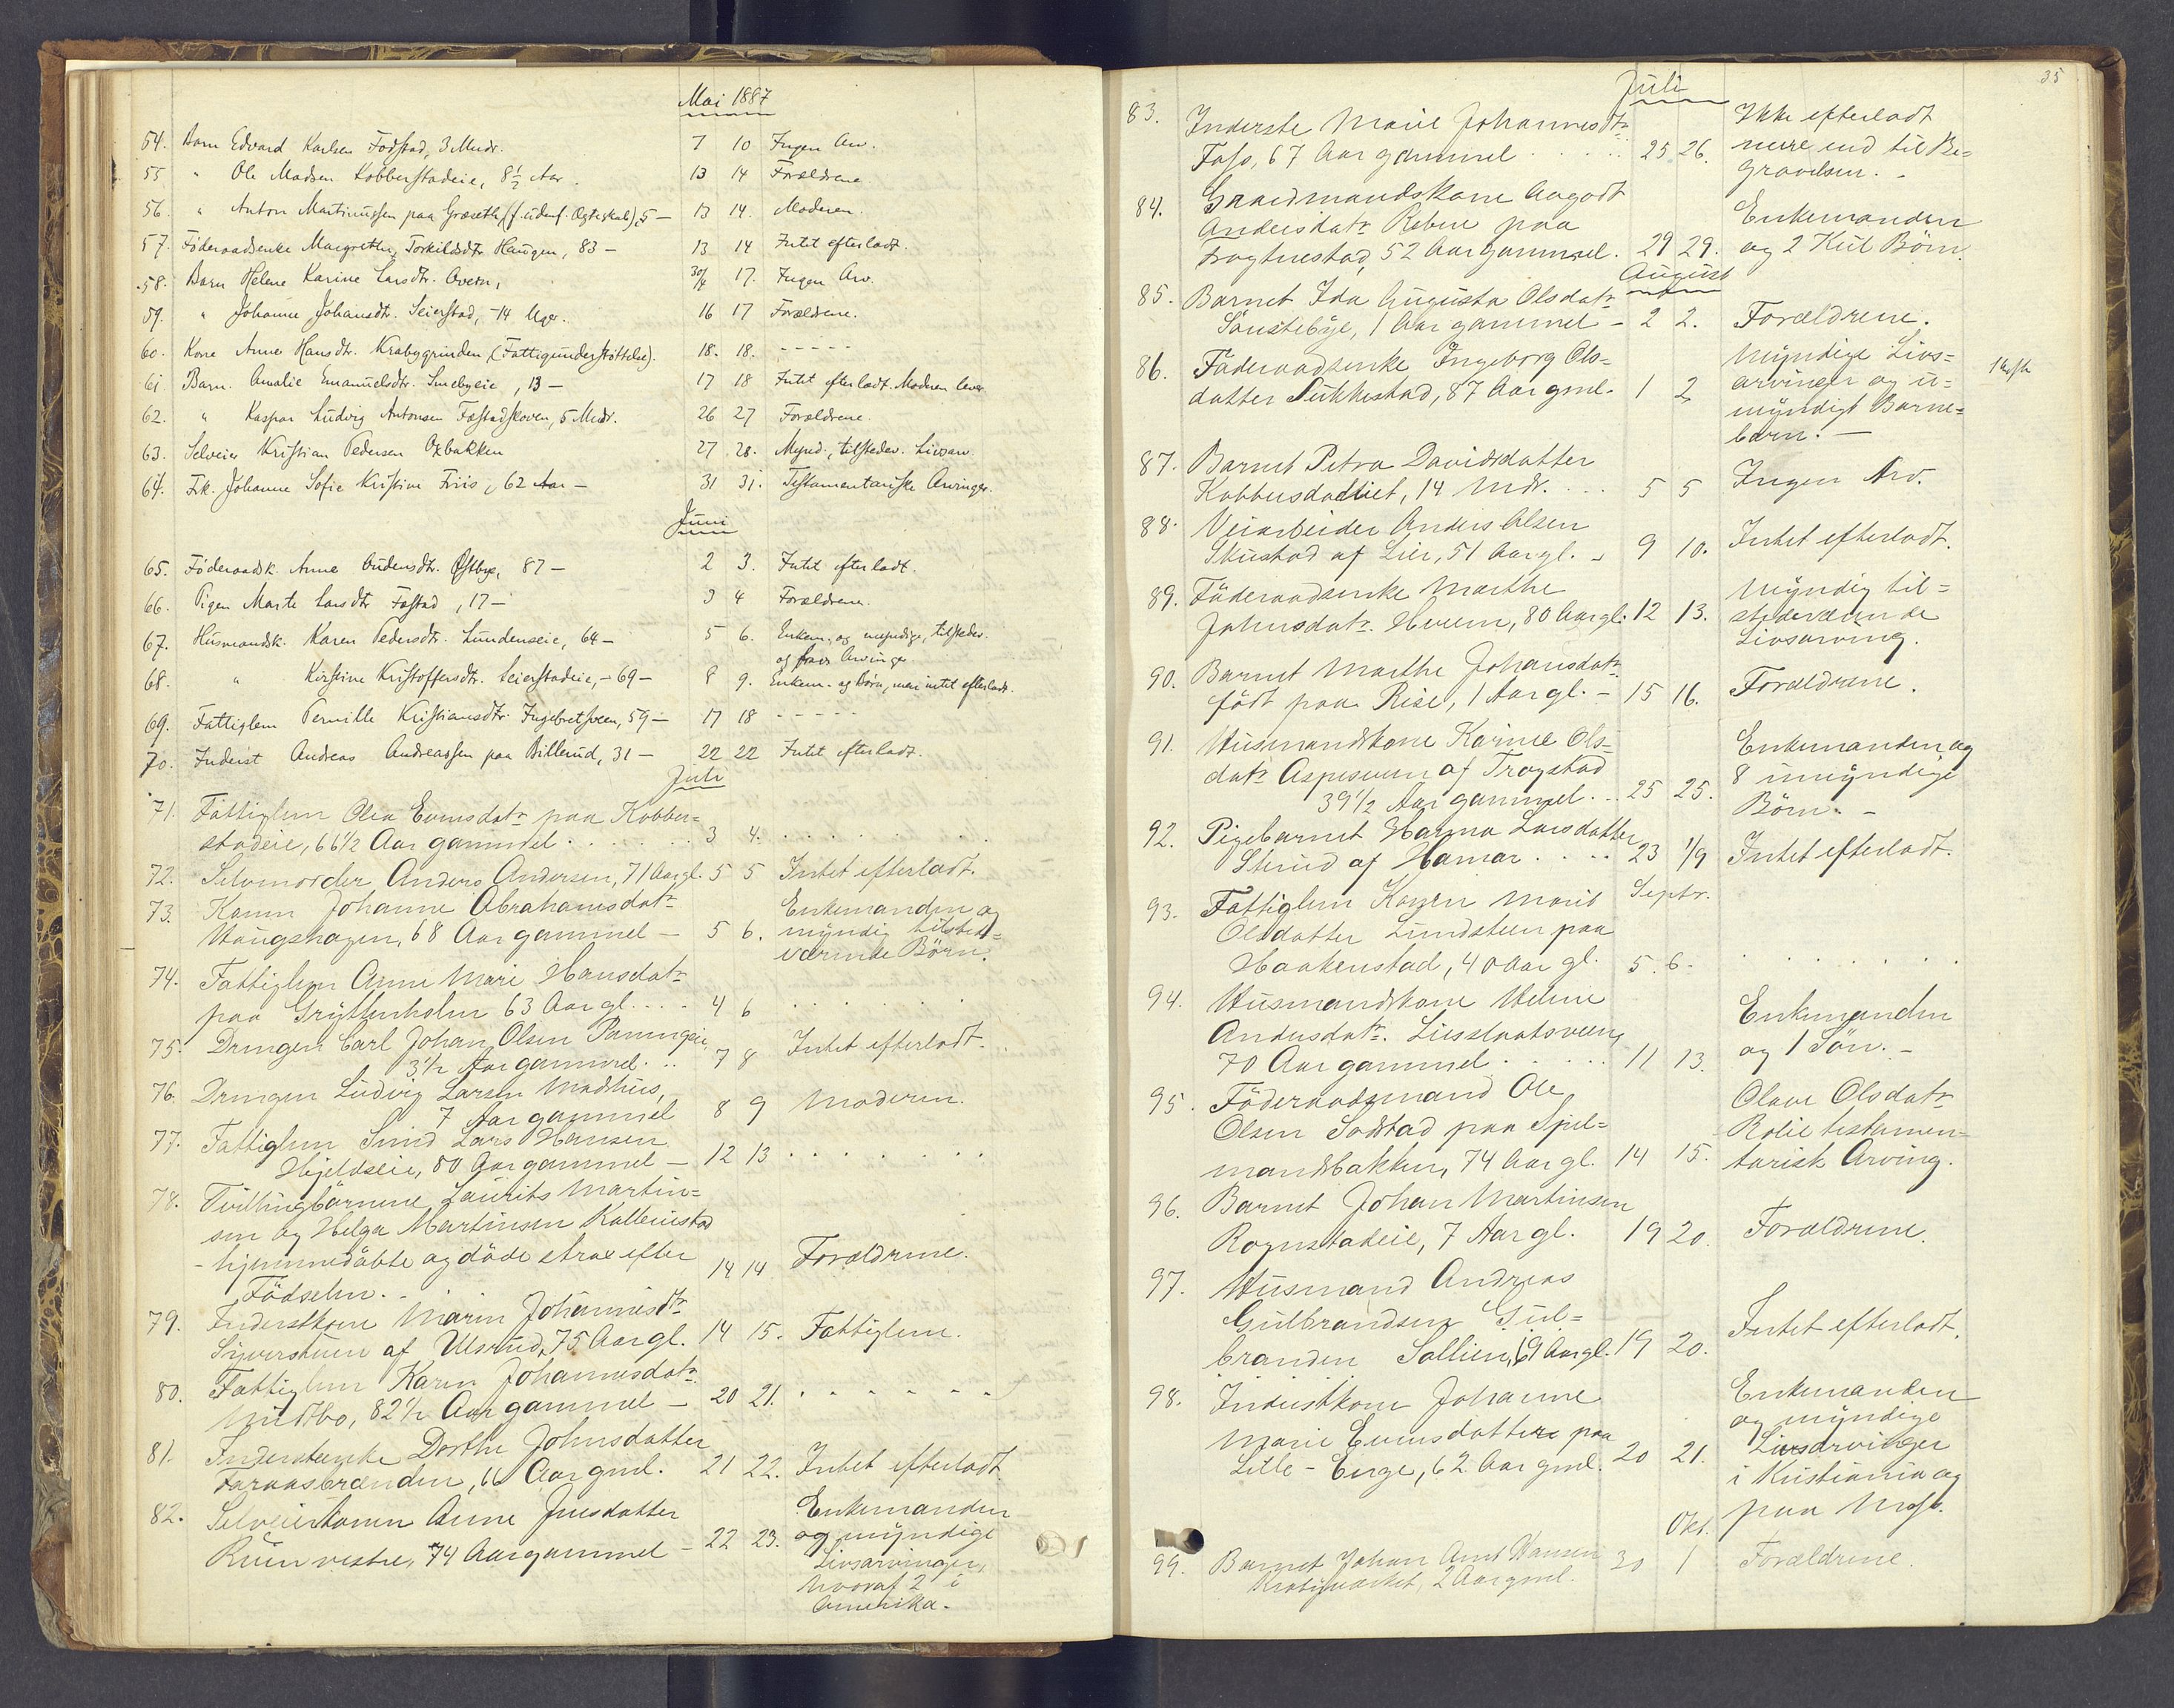 Mai 1887
54. Barn Edvard Karlsen Fodstad, 3 Mndr. 7 10 Ingen Arv.
55 " Ole Madsen Kobberstadeie, 8½ Aar. 13 14 Forældrene.
56. " Anton Martinussen paa Græseth, (f. udenf. Ægteskab), 5 — 13 14. Moderen.
57. Föderaadsenke Margrethe Torkildsdtr. Haugen, 83 — 13 14 Intet efterladt.
58. Barn Helene Karine Larsdtr. Overn, 30/4 17. Ingen Arv.
59. " Johanne Johansdtr. Seierstad, 14 Uger. 16 17 Forældrene.
60. Kone Anne Hansdtr. Krabygrinden, (Fattigunderstöttelse). 18. 18. - - - - -
61. Barn. Amalie Emanuelsdtr. Smebyeie, 13 — 17 18 Intet efterladt. Moderen lever
62. " Kaspar Ludvig Antonsen Fostadskoven, 5 Mndr. 26 27 Forældrene.
63. Selveier Kristian Pedersen Oxbakken 27 28. Mynd., tilsteder. Livsarv.
64. Frk. Johanne Sofie Kristine Friis, 62 Aar — 31 31. Testamentariske Arvinger.
Juni
65. Föderaadsk. Anne Andersdtr. Østbye, 87 — 2 3. Intet efterladt.
66. Pigen Marte Larsdtr. Fostad, 17 — 3 4 Forældrene.
67. Husmandsk. Karen Pedersdtr. Lundenseie, 64 — 5 6. Enkem. og myndige, tilstedev.
og frav. Arvinger.
68. " Kirstine Kristoffersdtr. Seierstadeie, — 69 — 8 9. Enkem. og Börn, men intet efterladt.
69. Fattiglem Pernille Kristiansdtr. Ingebretsveen, 59 — 17 18 - - - - -
70. Inderst Andreas Andreassen paa Billerud, 31 — 22 22 Intet efterladt.
Juli
71. Fattiglem Olea Evensdatr paa Kobber=
stadeie, 66½ Aar gammel . . . . . . 3 4. . . . . . .
72. Selvmorder Anders Andersen, 71 Aar gl. 5 5 Intet efterladt.
73. Konen Johanne Abrahamsdatr Enkemanden og
Haugshagen, 68 Aar gammel — 5 6. myndig tilsted=
værende Börn.
74. Fattiglem Anne Mari Hansdatr
paa Gryttenholm 63 Aar gl. . . . . 4 6 . . . . . .
75. Drengen Carl Johan Olsen
3½ Aar gammel. . . 7 8 Intet efterladt.
76. Drengen Ludvig Larsen Madshus,
7 Aar gammel 8 9 Moderen.
77. Fattiglem Smed Lars Hansen
Hjeldseie, 80 Aar gammel — 12 13 . . . . . . .
78. Tvillingbörnene Laurits Martin=
sen og Helga Martinsen Kallerustad
- hjemmedöbte og döde strax efter 14 14 Forældrene.
Födselen. -
79. Inderstkone Maren Johannesdtr
Syverstuen af Ulsrud, 75 Aar gl. 14 15. Fattiglem.
80. Fattiglem Karen Johannesdatr
Midtbo, 82½ Aar gammel — 20 21. . . . . . .
81. Inderstenke Dorthe Johnsdatter
Faraasbrænden, 66 Aar gml. 21 22. Intet efterladt.
82. Selveierkonen Anne Jensdatter Enkemanden
Ruen vestre, 74 Aar gammel — 22 23. og myndige
Livsarvinger,
hvoraf 2 i
Amerika.
35
Juli
83. Inderste Marie Johannesdtr Ikke efterladt
Foss, 67 Aar gammel . . . . . 25 26. mere end til Be=
gravelsen. -
84. Graedmandskone Aagodt Enkemanden
Andersdatr Rebne paa og 2 Kuld Börn.
Trogtnestad, 52 Aar gammel. 29 29.
August
85. Barnet Ida Augusta Olsdatr
Sönsteböe, 1 Aar gammel — 2 2. Forældrene.
86. Föderaadsenke Ingeborg Ols= Myndige Livs=
datter Sukkestad, 87 Aar gml. 1 2 arvinger og u=
myndigt Barne=
barn. —
87. Barnet Petra Davidsdatter
14 Mdr. . . . 5 5 Ingen Arv.
88. Veiarbeider Anders Olsen
Skustad af Lier, 51 Aar gl. - 9 10. Intet efterladt.
89. Föderaadsenke Marthe Myndig til=
Johnsdatr. Hveem, 80 Aar gl. 12 13. stedeværende
Livsarving.
90. Barnet Marthe Johansdatr
födt paa Rise, 1 Aar gl. — 15 16. Forældrene.
91. Husmandskone Karine Ols= Enkemanden og
datr Aspesveen af Trogstad 8 umyndige
39½ Aar gammel. . . 25 25. Börn. -
92. Pigebarnet Hanna Larsdatter
Sterud af Hamar . . . . 23 1/9 Intet efterladt.
Septr.
93. Fattiglem Karen Marie
Olsdatter Lundsteen paa
Haakenstad, 40 Aar gl. 5. 6. . . . . . . . .
94. Husmandskone Helene Enkemanden
Andersdatr. 
70 Aar gammel . . . . . 11 13. og 1 Sön. -
95. Föderaadsmand Ole Olave Olsdatr
Olsen Sodstad paa Spil= Rolie testamen=
mandsbakken, 74 Aar gl. 14 15. tarisk Arving.
96. Barnet Johan Martinsen
Rognstadeie, 7 Aar gl. 19 20. Forældrene.
97. Husmand Andreas
Gulbrandsen Gul=
branden Sollien, 69 Aar gl. 19 20. Intet efterladt.
98. Inderstkone Johanne Enkemanden
Marie Evensdatter paa og myndige
Lille-Berge, 62 Aar gml. 20 21. Livsarvinger
i Kristiania og
paa Moss.
Okt.
99. Barnet Johan Arnt Hansen 30 1 Forældrene.
2 Aar gml.